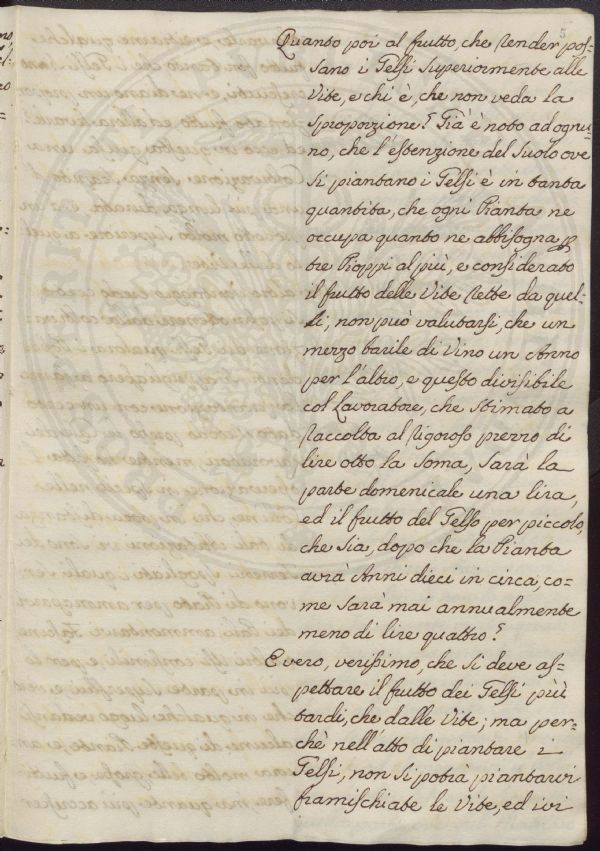 5
Quanto poi al frutto, che render pos=
sano i Gelsi Superiormente alle
Vite, e chi è, che non veda la
Sproporzione? Già è noto ad ognu=
no, che l'estenzione del Suolo ove
Si piantano i Gelsi è in tanta
quantita, che ogni Pianta ne
occupa quanto ne abbisogna p
tre Pioppi al più, e considerato
il frutto delle Vite rette da quel=
li, non può valutarsi, che un
mezzo barile di Vino un Anno
per l'altro, e questo divisibile
col Lavoratore, che Stimato a
raccolta al rigoroso prezzo di
lire otto la Soma, Sarà la
parte domenicale una lira,
ed il frutto del Gelso per piccolo,
che Sia, dopo che la Pianta
avrà Anni dieci in circa, co=
me Sarà mai annualmente
meno di lire quattro?
E vero, verissimo, che Si deve as=
pettare il frutto dei Gelsi più
tardi, che dalle Vite; ma per=
chè nell'atto di piantare i
Gelsi, non Si potrà piantarvi
framischiate le Vite, ed ivi